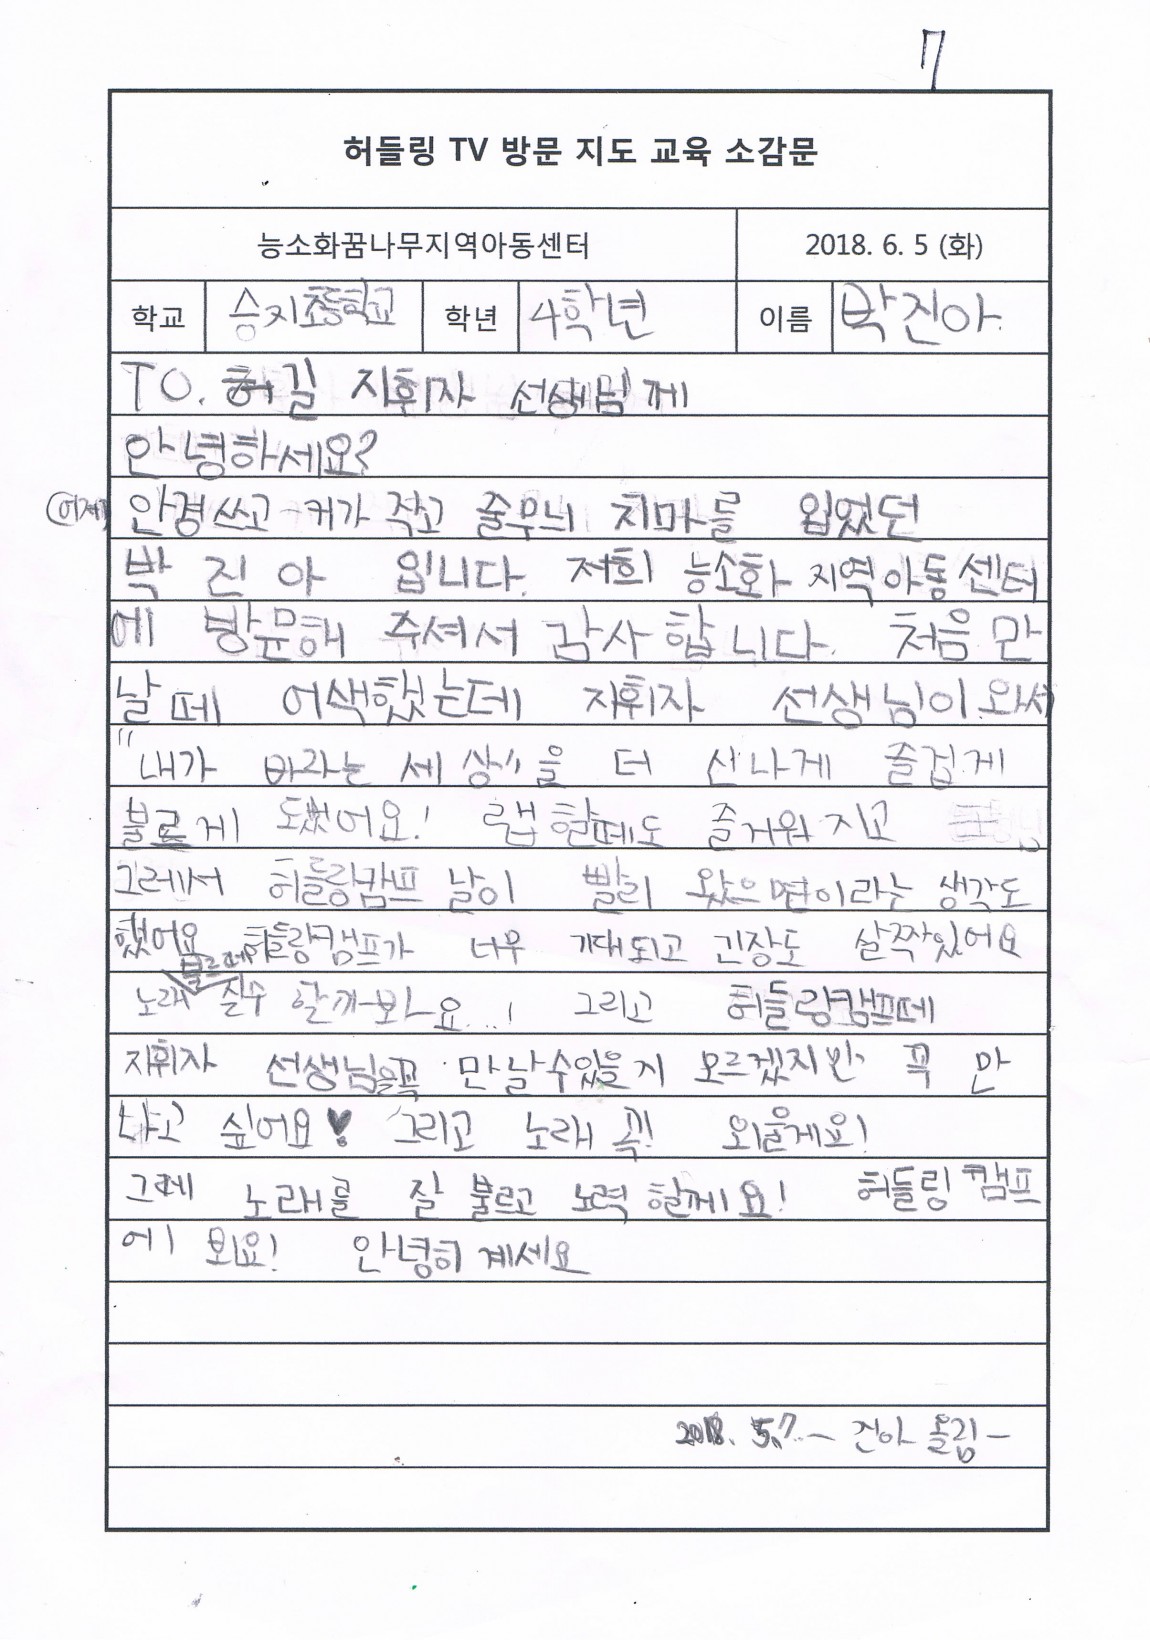 7
허들링 TV 방문 지도 교육 소감문
능소화꿈나무지역아동센터 2018. 6. 5 (화)
학교 승지초등학교 학년 4학년 이름 박진아
TO. 허길 지휘자 선생님께
안녕하세요?
어제 안경쓰고 키가 적고 줄무늬 치마를 입었던
박진아 입니다. 저희 능소화 지역아동센터
에 방문해 주셔서 감사합니다. 처음 만
날떼 어색했는데 지휘자 선생님이 와서
"내가 바라는 세상"을 더 신나게 즐겁게
불르게 됬었어요! 랩 할떼도 즐거워 지고
그레서 허들링캠프 날이 빨리 왔으면이라는 생각도
했어요 허들링캠프가 너무 기대되고 긴장도 살짝있어요
노래 불르떼 실수 할까봐요...! 그리고 허들링캠프떼
지휘자 선생님을꼭 만날수있을지 모르겠지만 꼭 만
나고 싶어요♥ 그리고 노래 꼭! 외울게요!
그레 노래를 잘 불르고 노력 할께요! 허들링 캠프
에 뵈요! 안녕히 계세요
2018. 5.7. - 진아 올림 -